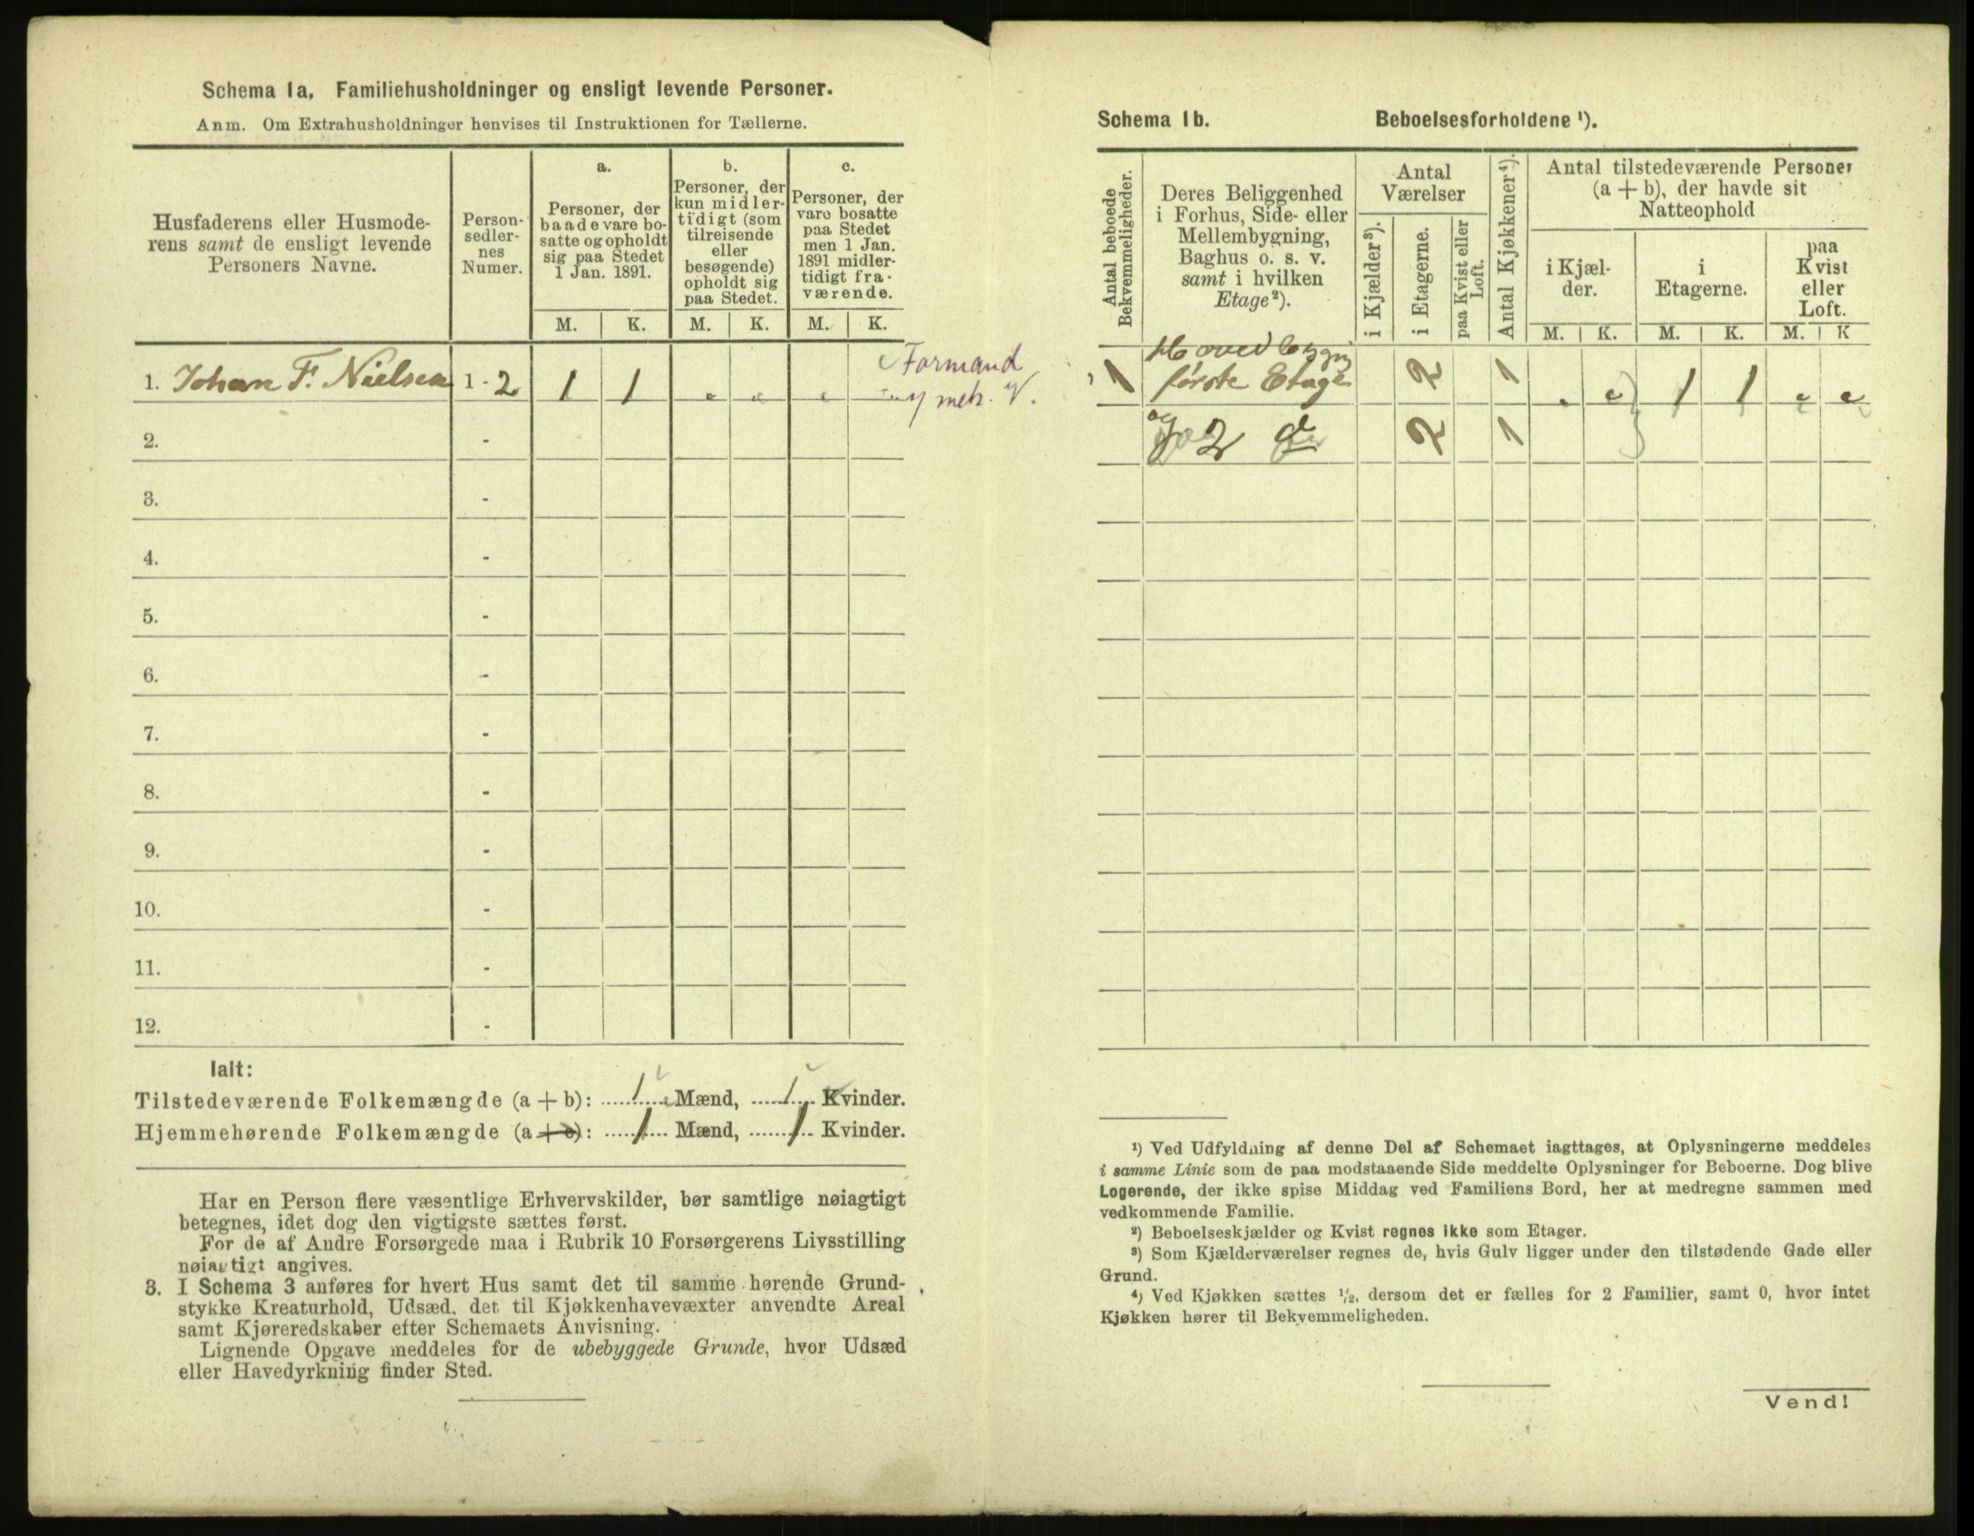 Schema 1a, Familiehusholdninger og ensligt levende Personer.
Anm. Om Extrahusholdninger henvises til Instruktionen for Tællerne.
Husfaderens eller Husmode-
rens samt de ensligt levende
Personers Navne.
Person-
sedler-
nes
Numer.
a.
Personer, der
baade vare bo-
satte og opholdt
sig paa Stedet
1 Jan. 1891.
M. K.
b.
Personer, der
kun midler-
tidigt (som
tilreisende
eller
besøgende)
opholdt sig
paa Stedet.
M. K.
c.
Personer, der
vare bosatte
paa Stedet
men 1 Jan.
1891 midler-
tidigt fra-
værende.
M. K.
1. Johan F. Nielsen 1 - 2 1 1
Formand
mek. V.
2. -
3. -
4. -
5. -
6. -
7. -
8. -
9. -
10. -
11. -
12. -
Ialt:
Tilstedeværende Folkemængde (a + b): 1 Mænd, 1 Kvinder.
Hjemmehørende Folkemængde (a + c): 1 Mænd, 1 Kvinder.
Har en Person flere væsentlige Erhvervskilder, bør samtlige nøiagtigt
betegnes, idet dog den vigtigste sættes først.
For de af Andre Forsørgede maa i Rubrik 10 Forsørgerens Livsstilling
nøiagtigt angives.
3. I Schema 3 anføres for hvert Hus samt det til samme hørende Grund-
stykke Kreaturhold, Udsæd, det til Kjøkkenhavevæxter anvendte Areal
samt Kjøreredskaber efter Schemaets Anvisning.
Lignende Opgave meddeles for de ubebyggede Grunde, hvor Udsæd
eller Havedyrkning finder Sted.
Schema 1b. Beboelsesforholdene ¹).
Antal beboede
Bekvemmeligheder.
Deres Beliggenhed
i Forhus, Side- eller
Mellembygning,
Baghus o. s. v.
samt i hvilken
Etage²).
Antal
Værelser
i Kjælder³).
i Etagerne.
paa Kvist eller
Loft.
Antal Kjøkkener⁴).
Antal tilstedeværende Personer
(a + b), der havde sit
Natteophold
i Kjæl-
der.
M. K.
i
Etagerne.
M. K.
paa
Kvist
eller
Loft.
M. K
Hovedbygng
1 første Etage 2 1 1 1
og 2 d 2 1
¹) Ved Udfyldning af denne Del af Schemaet iagttages, at Oplysningerne meddeles
i samme Linie som de paa modstaaende Side meddelte Oplysninger for Beboerne. Dog blive
Logerende, der ikke spise Middag ved Familiens Bord, her at medregne sammen med
vedkommende Familie.
²) Beboelseskjælder og Kvist regnes ikke som Etager.
³) Som Kjælderværelser regnes de, hvis Gulv ligger under den tilstødende Gade eller
Grund.
⁴) Ved Kjøkken sættes ½, dersom det er fælles for 2 Familier, samt 0, hvor intet
Kjøkken hører til Bekvemmeligheden.
Vend!